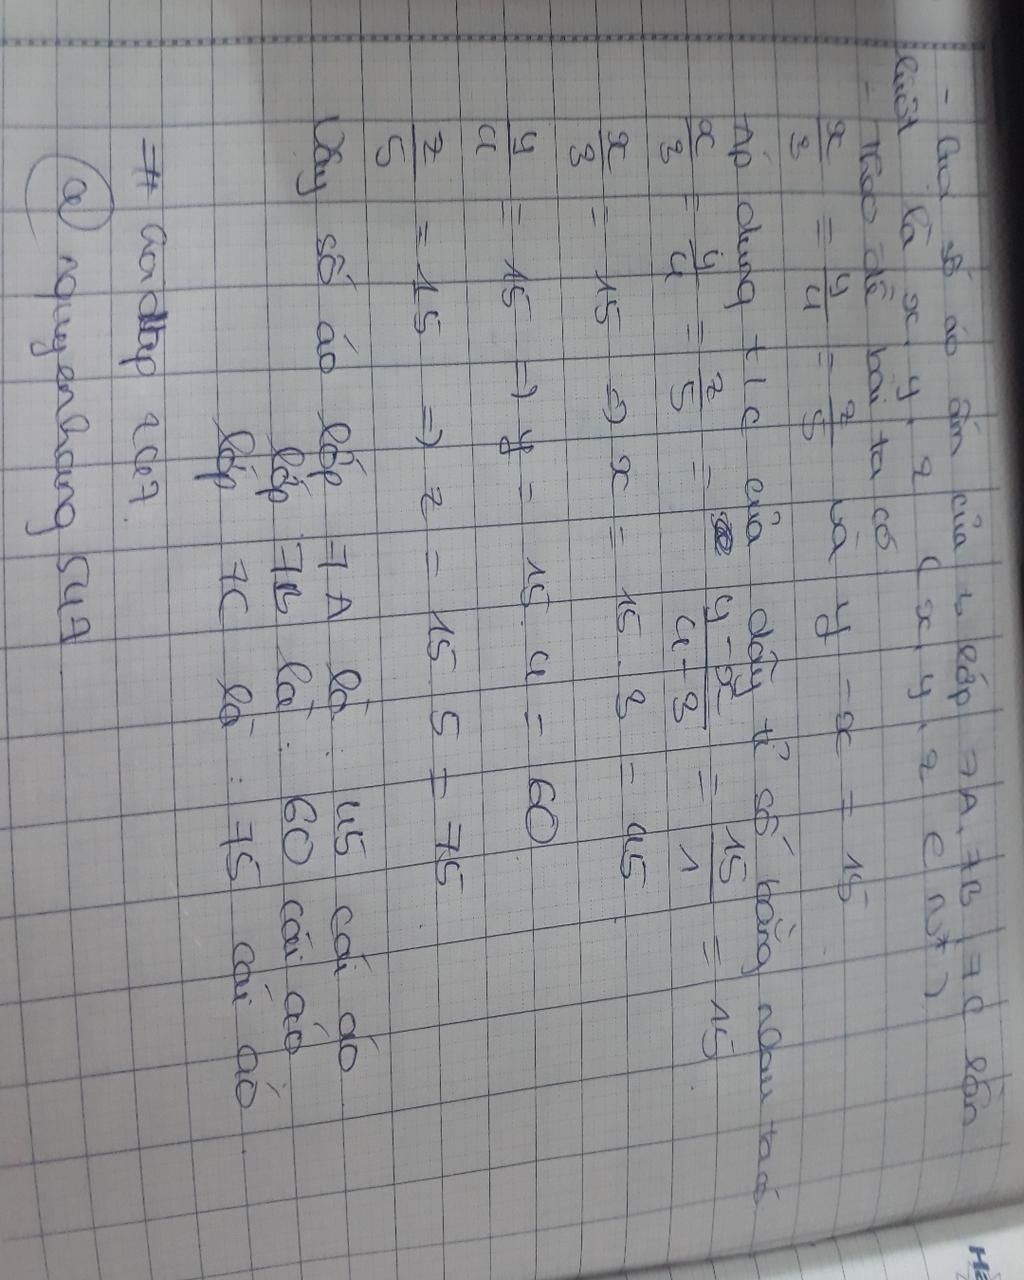 - Gọi số áo ấm của 3 lớp 7A, 7B, 7C lần
lượt là x, y, z (x, y, z ∈ N*)
- Theo đề bài ta có
x/3 = y/4 = z/5 và y - x = 15
Áp dụng t/c của dãy tỉ số bằng nhau ta có
x/3 = y/4 = z/5 = y-x/4-3 = 15/1 = 15
x/3 = 15 => x = 15 . 3 = 45
y/4 = 15 => y = 15 . 4 = 60
z/5 = 15 => z = 15 . 5 = 75
Vậy số áo lớp 7A là : 45 cái áo
lớp 7B là : 60 cái áo
lớp 7C là : 75 cái áo
@ nguyenhang 547